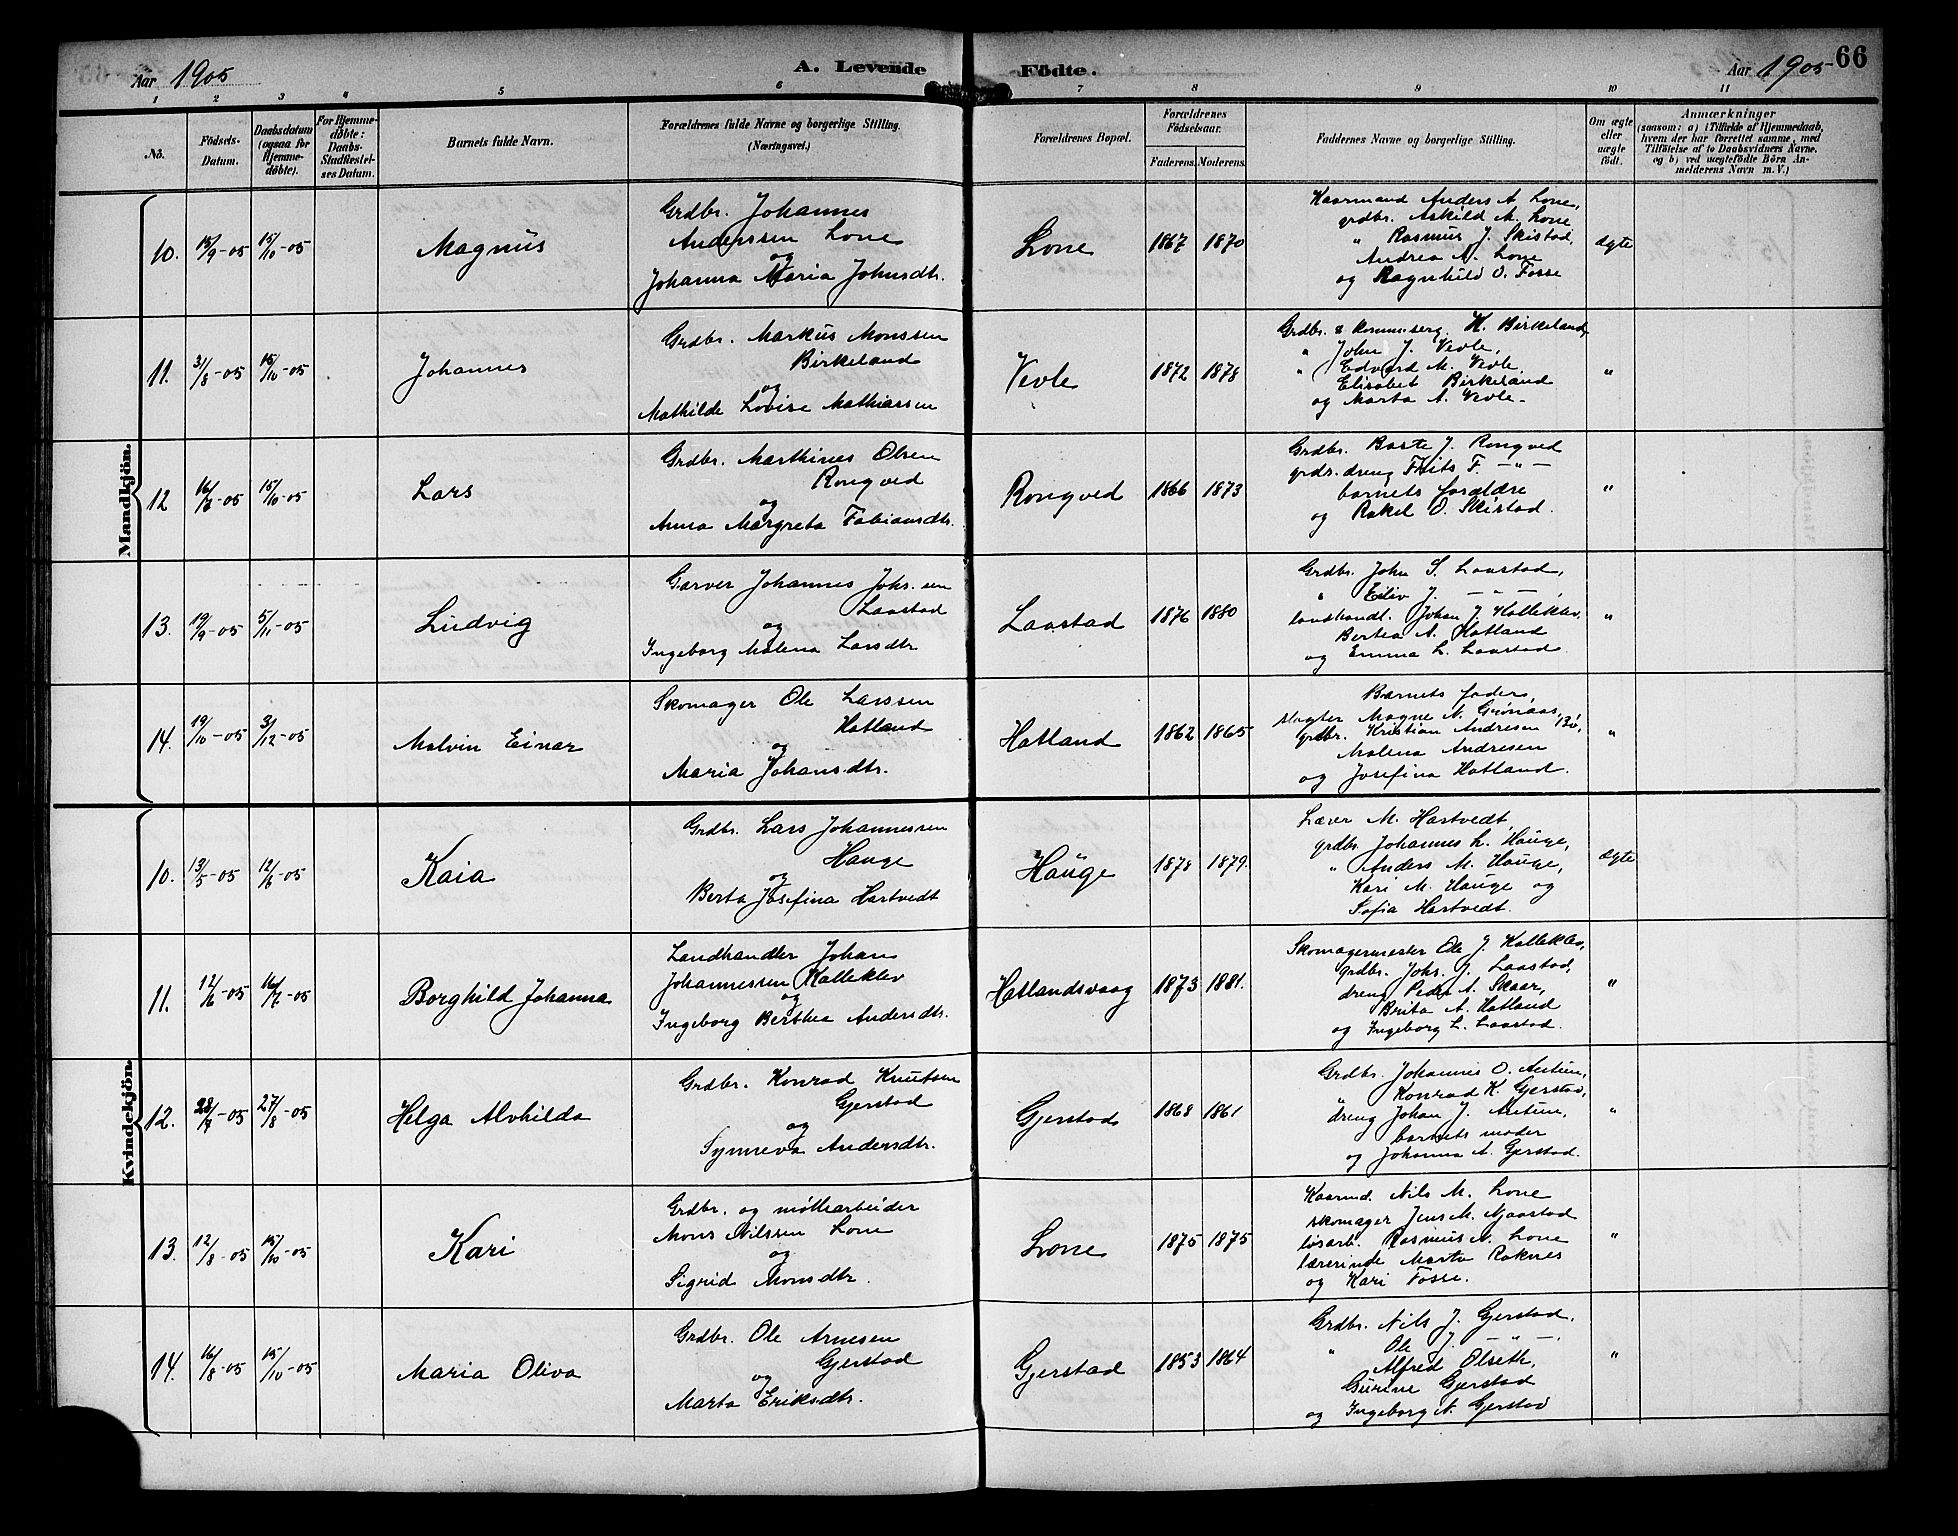 Aar 1905
A. Levende Födte.
Aar 1905
66
1 2 3 4 5 6 7 8 9 10 11
No.
Födsels-Datum.
Daabsdatum (ogsaa for Hjemmedøbte).
For Hjemmedøbte: Daabs-Stadfæstelses Datum.
Barnets fulde Navn.
Forældrenes fulde Navne og borgerlige Stilling.
(Næringsvei.)
Forældrenes Bopæl.
Forældrenes Födselsaar.
Faderens. Moderens.
Faddernes Navne og borgerlige Stilling.
Om ægte eller uægte født.
Anmærkninger
(saasom: a) i Tilfælde af Hjemmedaab, hvem der har forrettet samme, med Tilføielse af to Daabsvidners Navne, og b) ved uægtefödte Börn Anmelderens Navn m. V.)
Mandkjön.
10. 15/9-05 15/10-05
Magnus
Grdbr. Johannes
Anderssen Lone
og
Johanna Maria Johnsdtr.
Lone
1867 1870
Kaarmand Anders A. Lone,
grdbr. Askild M. Lone
" Rasmus J. Skistad,
Andrea A. Lone
og Ragnhild O. Fosse
Ægte
11. 31/8-05 15/10-05
Johannes
Grdbr. Markus Monssen
Birkeland
og
Mathilde Lovise Mathiassen
Vevle
1872 1878
Grdbr. & K. Birkeland
" John J. Vevle,
" Edvard M. Vevle,
Elisabet Birkeland
og Marta A. Vevle.
"
12 15/10-05
Lars
Grdbr. Marthines Olsen
Rongved
og
Anna Margreta Fabiansdtr.
Rongved
1866 1873
Grdbr. Baste J. Rongved
grdr. dreng Frits F. -"-
barnets forældre
og Rakel O. Skistad.
"
13. 19/9-05 5/11-05
Ludvig
Garver Johannes Johs.sen
Laastad
og
Ingeborg Malena Larsdtr.
Laastad
1876 1880
Grdbr. John S. Laastad,
" Eiliv J. -"-,
landhandl. Johan J. Kalleklev,
Bertea A. Hatland
og Emma L. Laastad.
"
14. 19/10-05 3/12-05
Malvin Einar
Skomager Ole Larssen
Hatland
og
Maria Johansdtr.
Hatland
1862 1865
Barnets fader,
slagter Magne N. Grønaas,
grdbr. Kristian Andresen Bö,
Malena Andresen
og Josefina Hatland.
"
Kvindekjön.
10. 13/5-05 12/6-05
Kaia
Grdbr. Lars Johannessen
Hauge
og
Berta Josefina Hartvedt
Hauge
1878 1879.
Lærer M. Hartvedt,
grdbr. Johannes L. Hauge,
" Anders M. Hauge,
Kari M. Hauge og
Sofia Hartvedt.
Ægte
11. 12/6-05 16/7-05
Borghild Johanna
Landhandler Johan
Johannessen Kalleklev
og
Ingeborg Berthea Andersdtr.
Hatlandsvaag
1873 1881.
Skomagermester Ole J. Kalleklev,
grdbr. Johs. J. Laastad,
dreng Peder A. Skaar,
Brita A. Hatland
og Ingeborg L. Laastad.
"
12. 28/7-05 27/8-05
Helga Alvhilda
Grdbr. Konrad Knutsen
Gjerstad
og
Synneva Andersdtr.
Gjerstad
1868 1861
Grdbr. Johannes O.
" Konrad K. Gjerstad,
dreng Johan J.
barnets moder
og Johanna A. Gjerstad.
"
13. 12/8-05 15/10-05
Kari
Grdbr. og møllearbeider
Mons Nilssen Lone
og
Sigrid Monsdtr.
Lone
1875 1875
Kaarmd. Nils M. Lone
skomager Jens M. Mjaastad
løsarb. Rasmus N. Lone
lærerinde Marta Raknes
og Kari Fosse.
"
14. 16/8-05 15/10-05
Maria Oliva
Grdbr. Ole Arnesen
Gjerstad
og
Marta Eriksdtr.
Gjerstad
1853 1864
Grdbr. Nils J. Gjerstad,
" Ole J. -"-.
Alfred Olseth,
Gurine Gjerstad
og Ingeborg N. Gjerstad
"